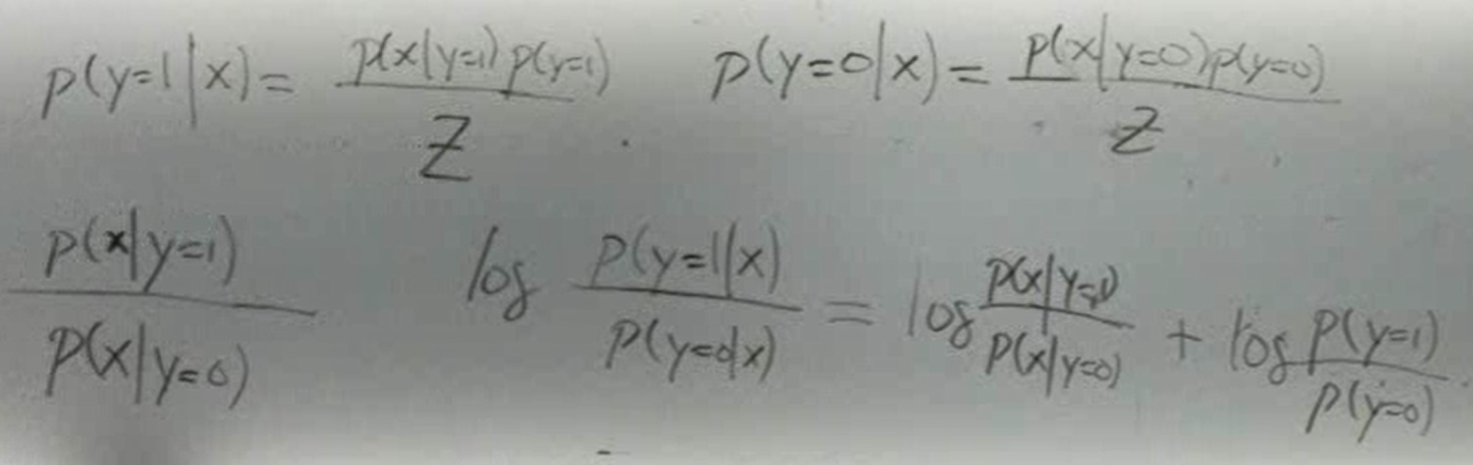 p(y=1|x) = p(x|y=1) p(y=1) / Z . p(y=0|x) = p(x|y=0) p(y=0) / Z
p(x|y=1) / p(x|y=0) log p(y=1|x) / p(y=0|x) = log p(x|y=1) / p(x|y=0) + log p(y=1) / p(y=0)